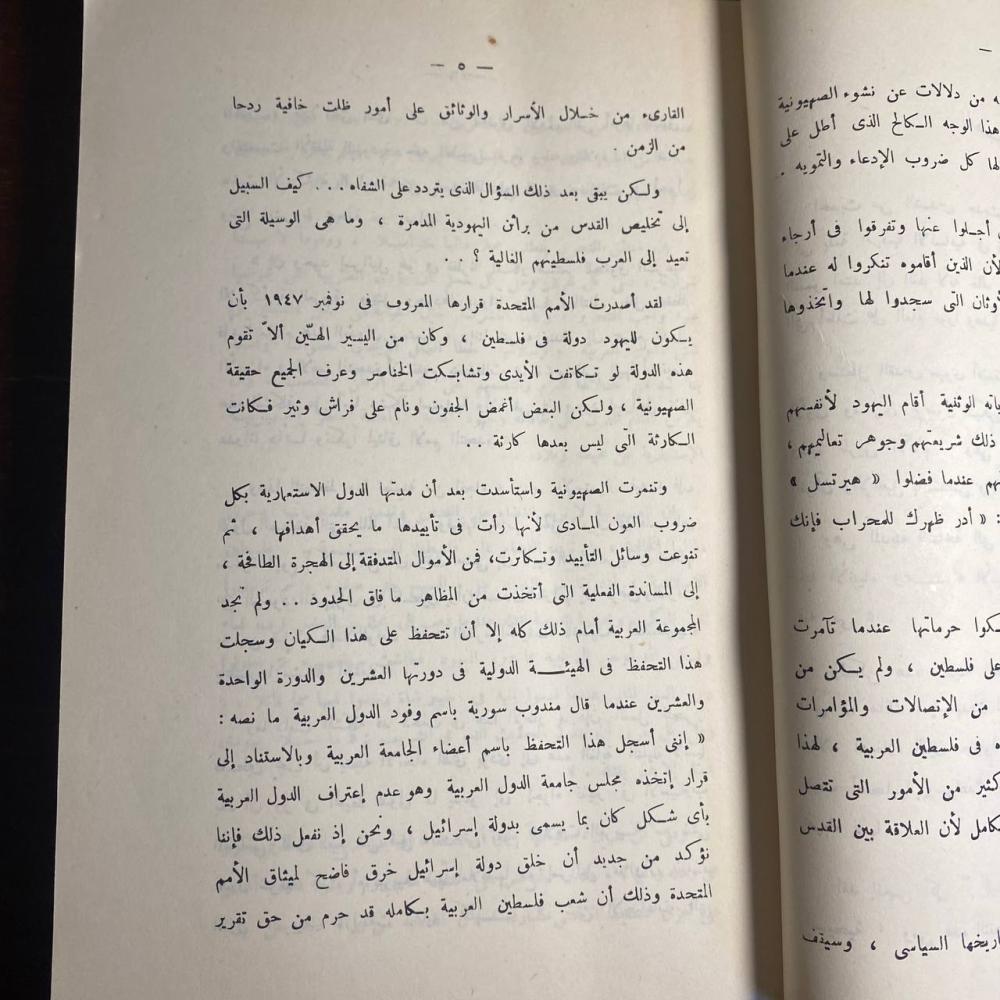 — ٥ —
القارىء من خلال الأسرار والوثائق على أمور ظلت خافية ردحا
من الزمن .
ولكن يبقى بعد ذلك السؤال الذى يتردد على الشفاه ... كيف السبيل
إلى تخليص القدس من براثن اليهودية المدمرة ، وما هى الوسيلة التى
تعيد إلى العرب فلسطينهم الغالية ؟ . .
لقد أصدرت الأمم المتحدة قرارها المعروف فى نوفمبر ١٩٤٧ بأن
يكون لليهود دولة فى فلسطين ، وكان من اليسير الهيّن ألاّ تقوم
هذه الدولة لو تكاتفت الأيدى وتشابكت الخناصر وعرف الجميع حقيقة
الصهيونية ، ولكن البعض أغمض الجفون ونام على فراش وثير فكانت
الكارثة التى ليس بعدها كارثة . .
وتنمرت الصهيونية واستأسدت بعد أن مدتها الدول الاستعمارية بكل
ضروب العون المادى لأنها رأت فى تأييدها ما يحقق أهدافها ، ثم
تنوعت وسائل التأييد وتكاثرت، فمن الأموال المتدفقة إلى الهجرة الطافحة ،
إلى المساندة الفعلية التى أتخذت من المظاهر ما فاق الحدود . . ولم تجد
المجموعة العربية أمام ذلك كله إلا أن تتحفظ على هذا الكيان وسجلت
هذا التحفظ فى الهيئة الدولية فى دورتها العشرين والدورة الواحدة
والعشرين عندما قال مندوب سورية باسم وفود الدول العربية ما نصه :
« إننى أسجل هذا التحفظ باسم أعضاء الجامعة العربية وبالاستناد إلى
قرار إتخذه مجلس جامعة الدول العربية وهو عدم إعتراف الدول العربية
بأى شكل كان بما يسمى بدولة إسرائيل ، ونحن إذ نفعل ذلك فإننا
نؤكد من جديد أن خلق دولة إسرائيل خرق فاضح لميثاق الأمم
المتحدة وذلك أن شعب فلسطين العربية بكامله قد حرم من حق تقرير
—
ه من دلالات عن نشوء الصهيونية
هذا الوجه الكالح الذى أطل على
لها كل ضروب الإدعاء والتمويه .
أجلوا عنها وتفرقوا فى أرجاء
لأن الذين أقاموه تنكروا له عندما
وثان التى سجدوا لها واتخذوها
انه الوثنية أقام اليهود لأنفسهم
ذلك شريعتهم وجوهر تعاليمهم ،
هم عندما فضلوا « هيرتسل »
: « أدر ظهرك للمحراب فإنك
كوا حرماتها عندما تآمرت
على فلسطين ، ولم يكن من
من الإتصالات والمؤامرات
ه فى فلسطين العربية ، لهذا
كثير من الأمور التى تتصل
كامل لأن العلاقة بين القدس
اريخها السياسى ، وسيقف